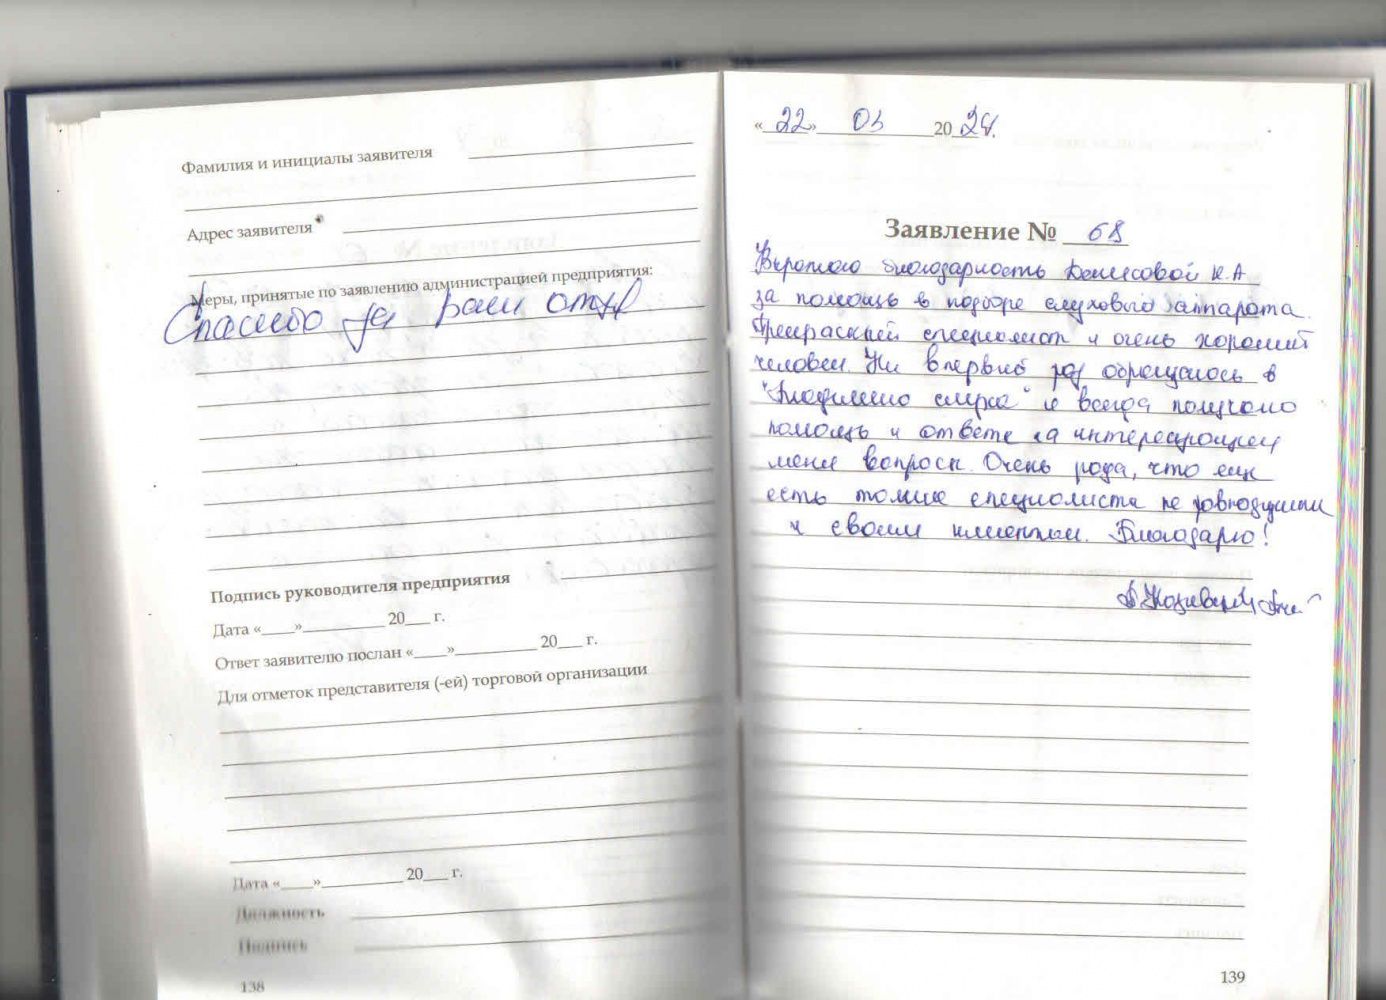 Фамилия и инициалы заявителя
Адрес заявителя
Меры, принятые по заявлению администрацией предприятия:
Спасибо за Ваш отзыв
Подпись руководителя предприятия
Дата «___»_________ 20___ г.
Ответ заявителю послан «___»_________ 20___ г.
Для отметок представителя (-ей) торговой организации
Дата «___»_________ 20___ г.
Должность
Подпись
138
«22» 03 2024.
Заявление № 68
Выражаю благодарность Денисовой К.А
за помощь в подборе слухового аппарата.
Прекрасный специалист и очень хороший
человек. Не впервый раз обращаюсь в
"Академию слуха" и всегда получаю
помощь и ответы на интересующие
меня вопросы. Очень рада, что еще
есть такие специалисты не равнодушные
к своим клиентам. Благодарю!
139